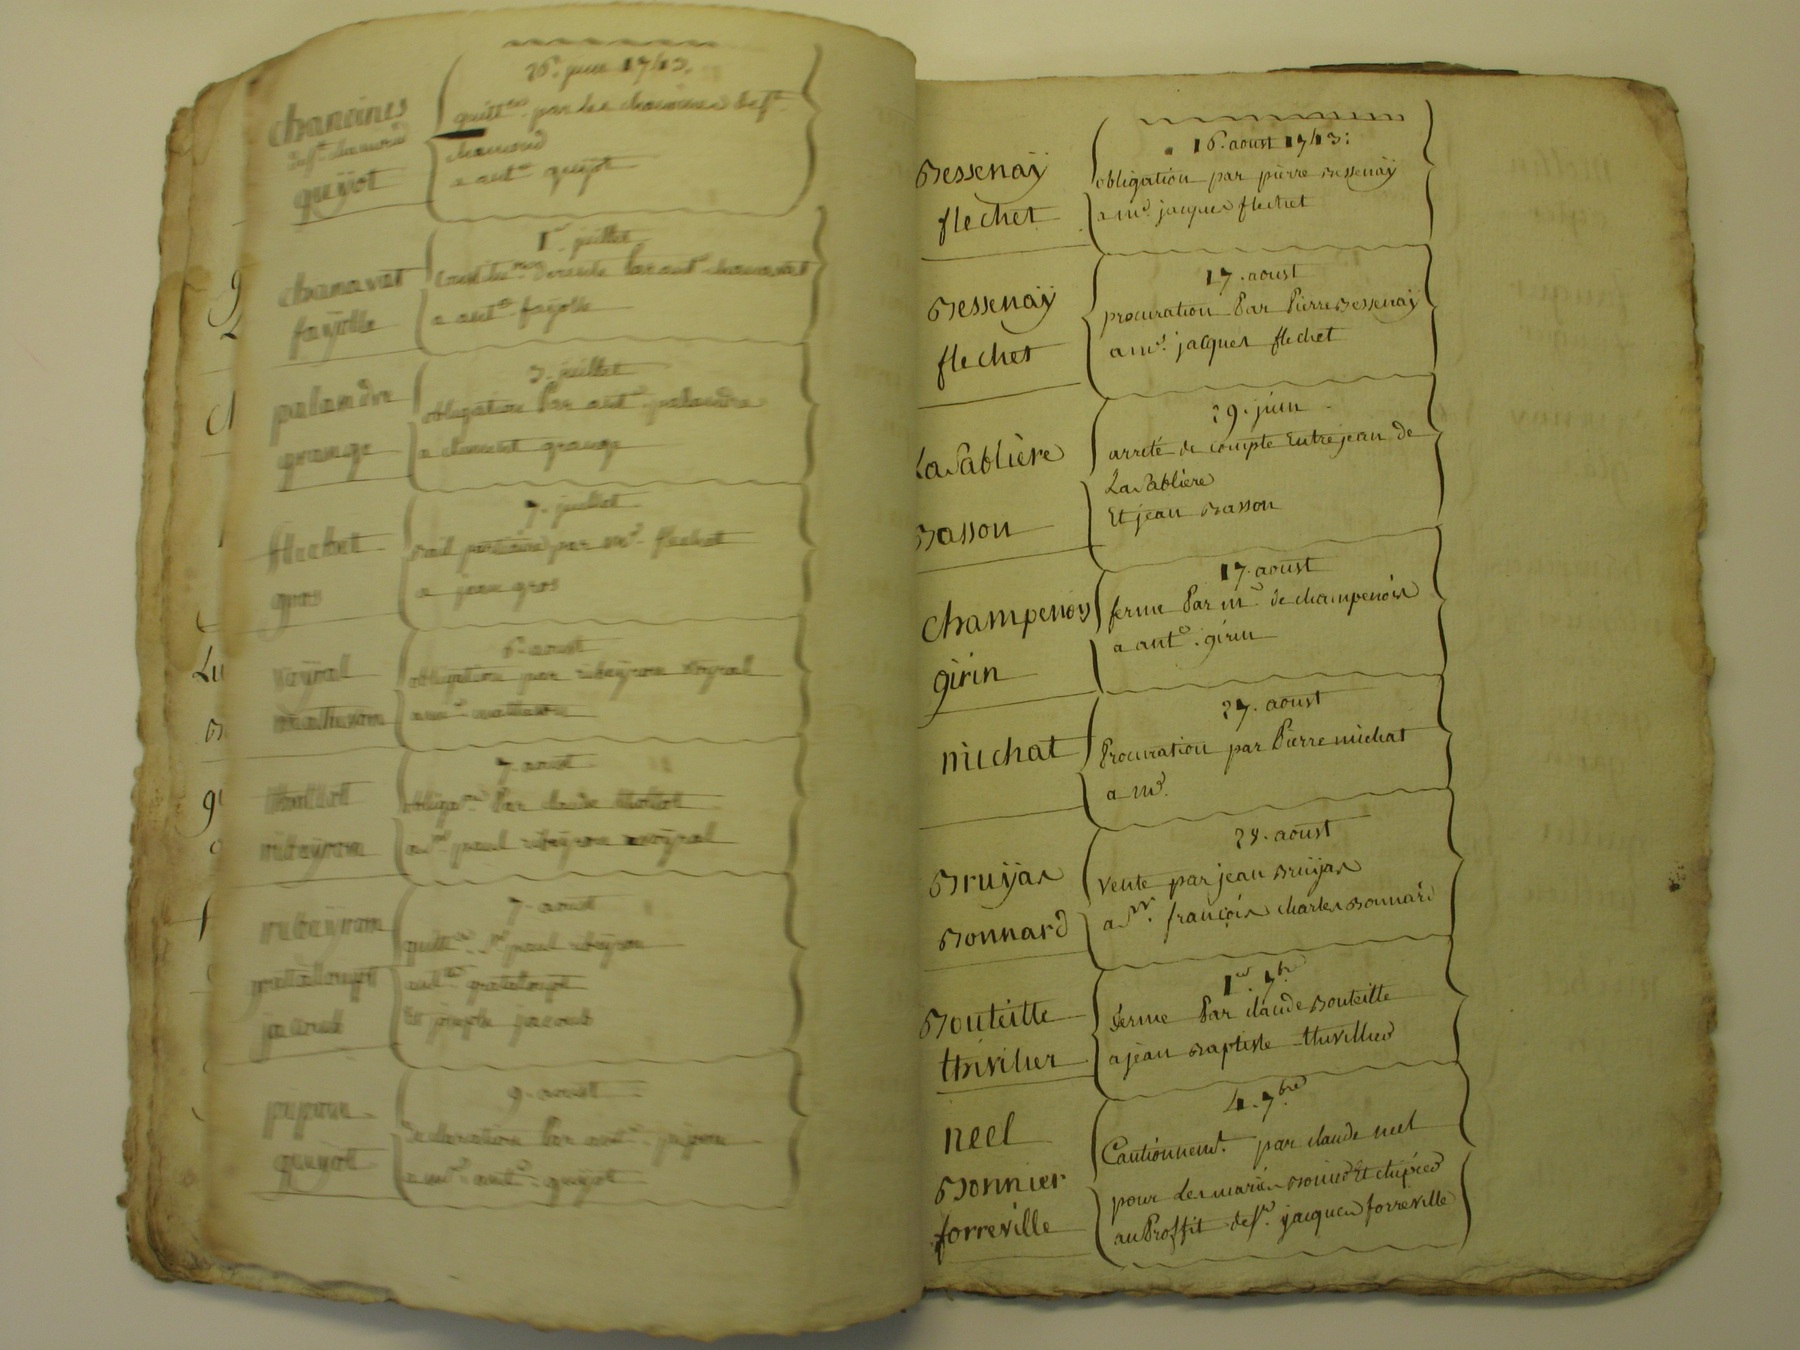 chanoines
de st. chamond
guÿot
26. juin 1743.
quitt.ce par les chanoines de st.
chamond
a ant.e guÿot
chanavat
faÿolle
1er. juillet
Constitu.on de rente Par ant.e chanavat
a ant.e faÿolle
palandre
grange
3. juillet
obligation Par ant.e palandre
a clement grange
flechet
gros
7. juillet
Bail par mr. flechet
a jean gros
voÿral
matheron
6. aoust
obligation par ribeÿron voÿral
a mr. matheron
thollot
ribeÿron
7. aoust
obliga.on Par claude thollot
a sr. paul ribeÿron voÿral
ribeÿron
grataloupt
jacoud
7. aoust
quitt.ce sr. paul ribeÿron
ant.e grataloupt
Et joseph jacoud
pupon
guÿot
9. aoust
declaration Par ant.e
a mr. ant.e guÿot
Bessenaÿ
flechet
16. aoust 1743:
obligation par pierre Bessenaÿ
a mr. jacques flechet
Bessenaÿ
flechet
17. aoust
procuration Par Pierre Bessenaÿ
a mr. jacques flechet
La Sablière
Basson
29. juin
arreté de compte Entre jean de
La Sablière
Et jean Basson
champenois
girin
17. aoust
ferme Par mr. de champenois
a ant.e girin
michat
27. aoust
Procuration par Pierre michat
a mr.
Bruÿas
Bonnard
28. aoust
Vente par jean Bruÿas
a Sr. françois charles Bonnard
Bouteille
thivilier
1er. 7bre
ferme Par claude Bouteille
a jean Baptiste thivillier
neel
Bonnier
forreville
4. 7bre
Cautionnemt. par claude neel
pour Les mariés Bonier Et
au Proffit de sr. jacques forreville